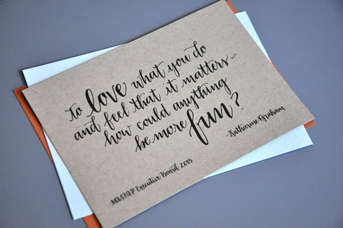 to love what you do
and feel that it matters-
how could anything
be more fun?
-Katharine Graham
Executive Board 2015